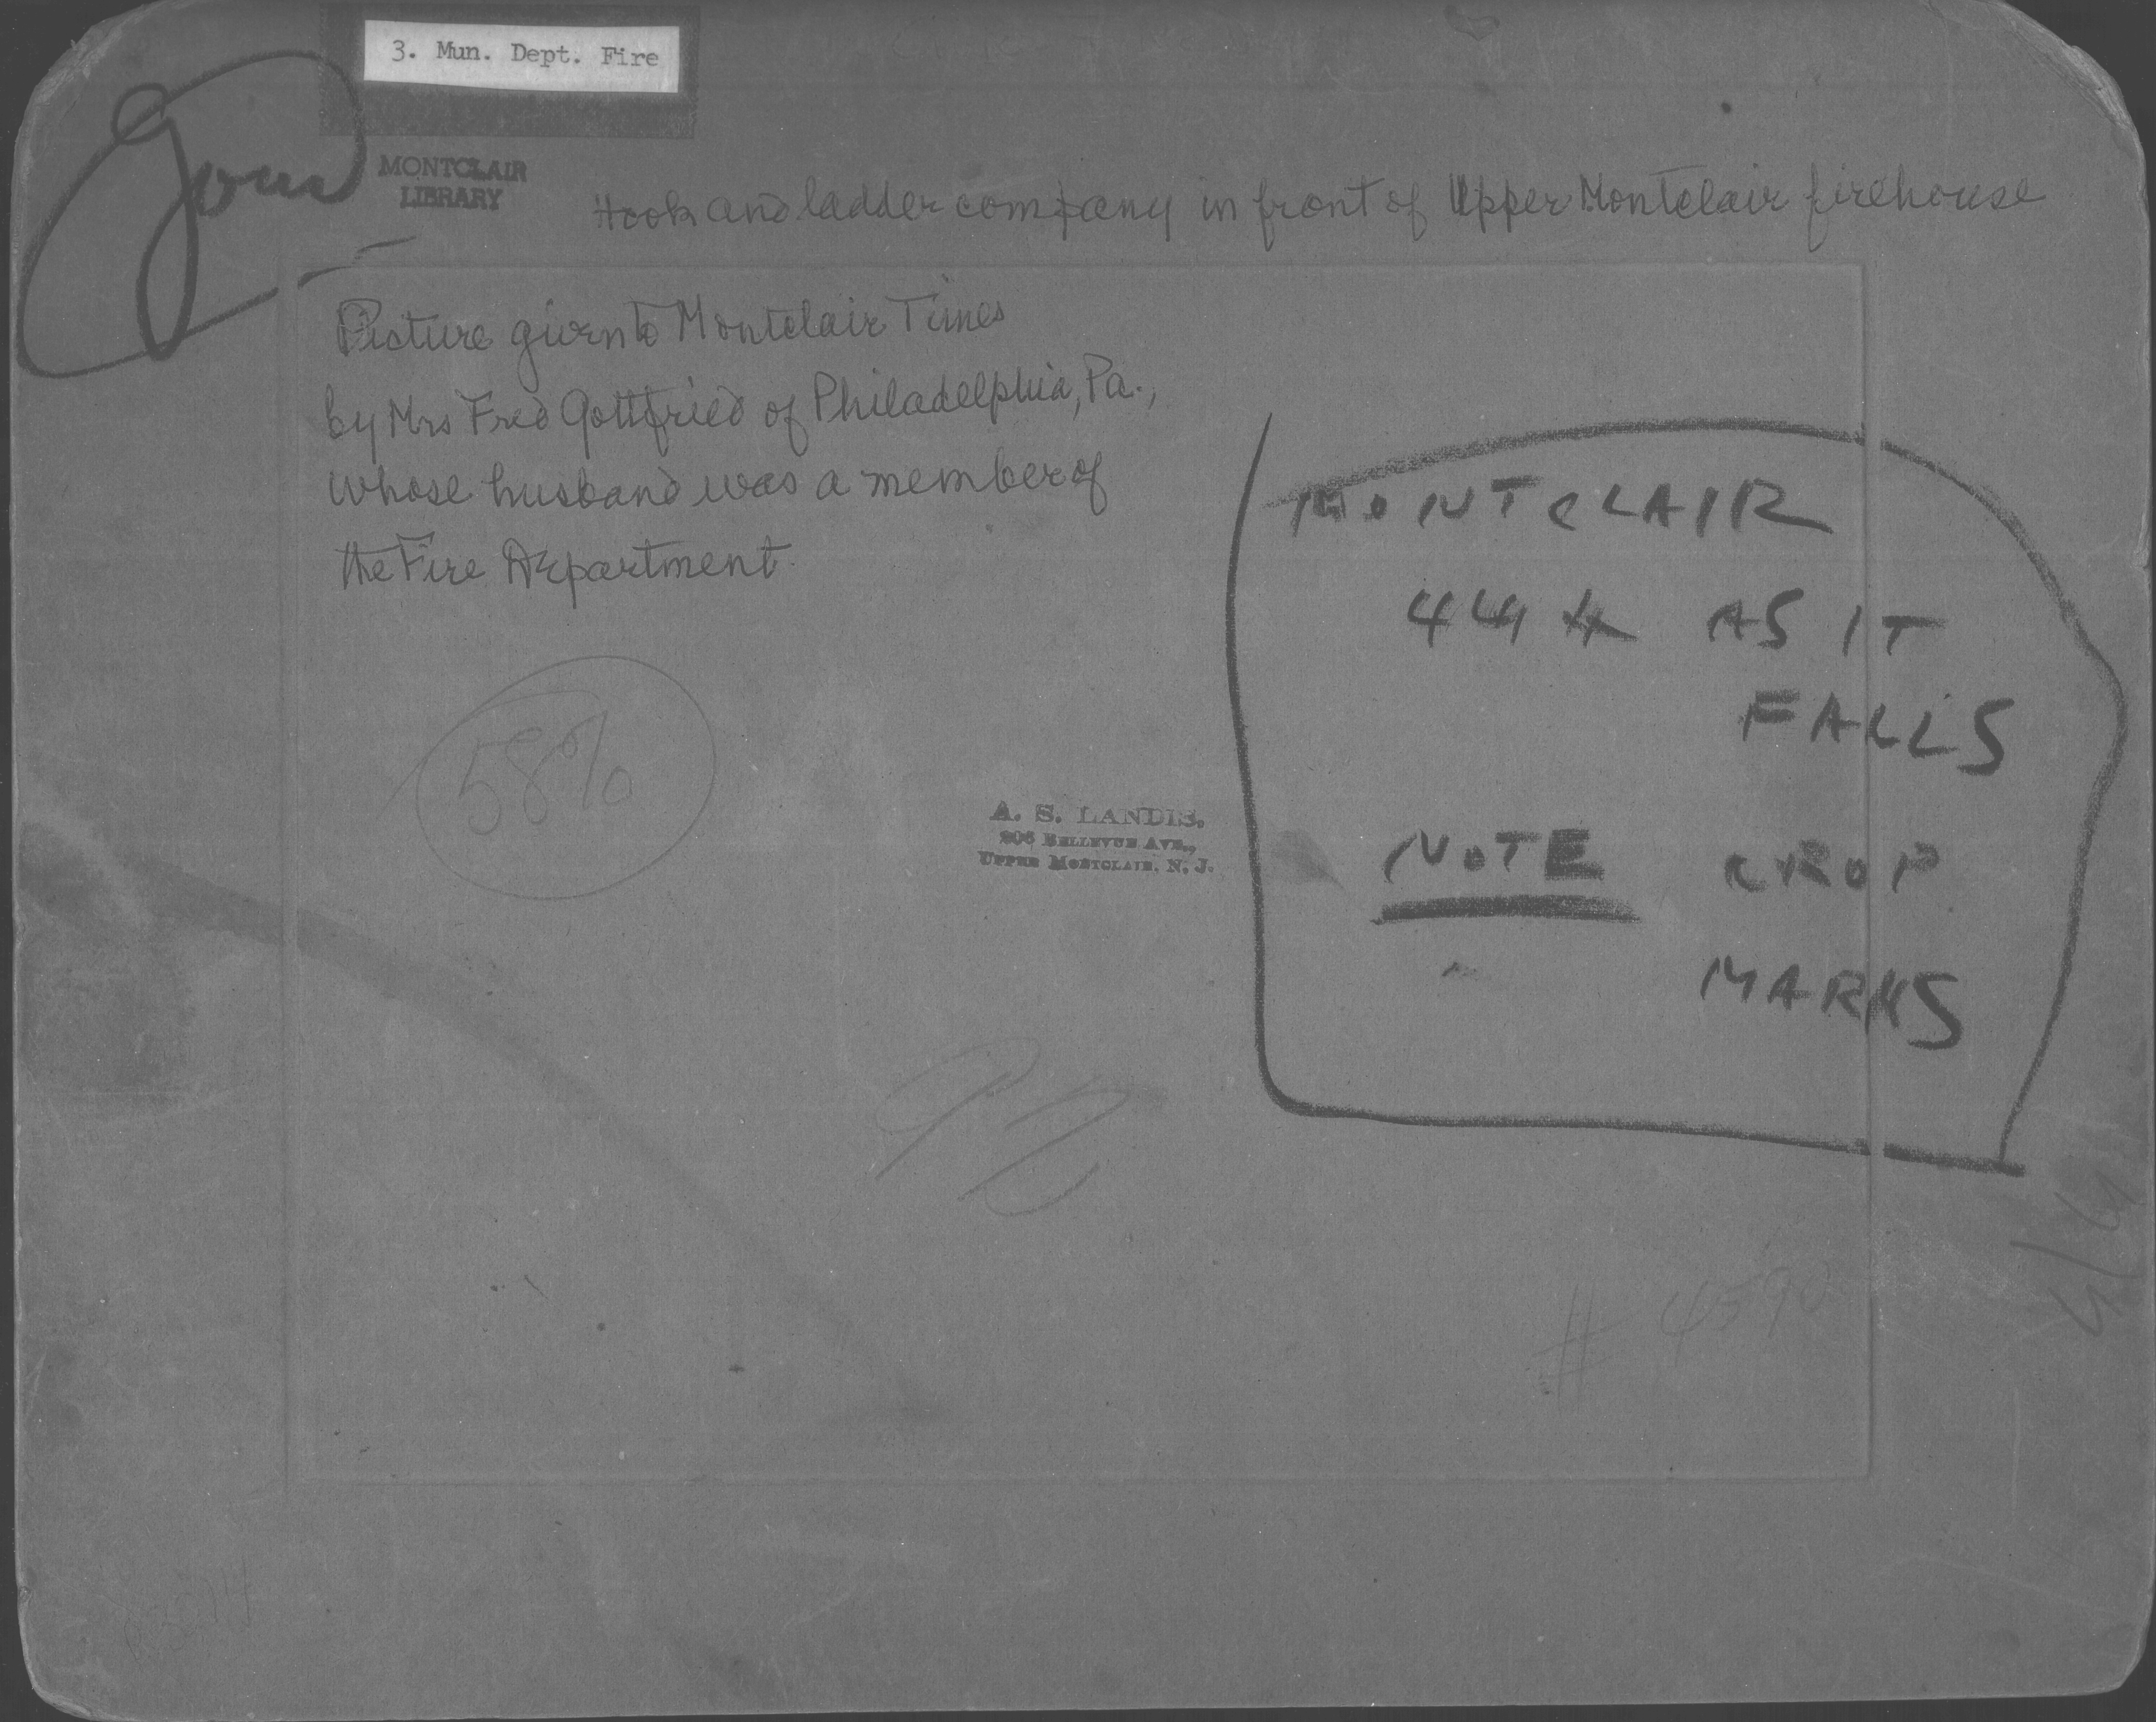 3. Mun. Dept. Fire
MONTCLAIR
LIBRARY
Hook and ladder company in front of Upper Montclair firehouse
Picture given to Montclair Times
by Mrs Fred Gottfried of Philadelphia, Pa.,
whose husband was a member of
the Fire Department.
MONTCLAIR
444 AS IT
FALLS
58%
A. S. LANDIS,
206 BELLEVUE AVE.,
UPPER MONTCLAIR, N. J.
NOTE CROP
MARKS
# 4590